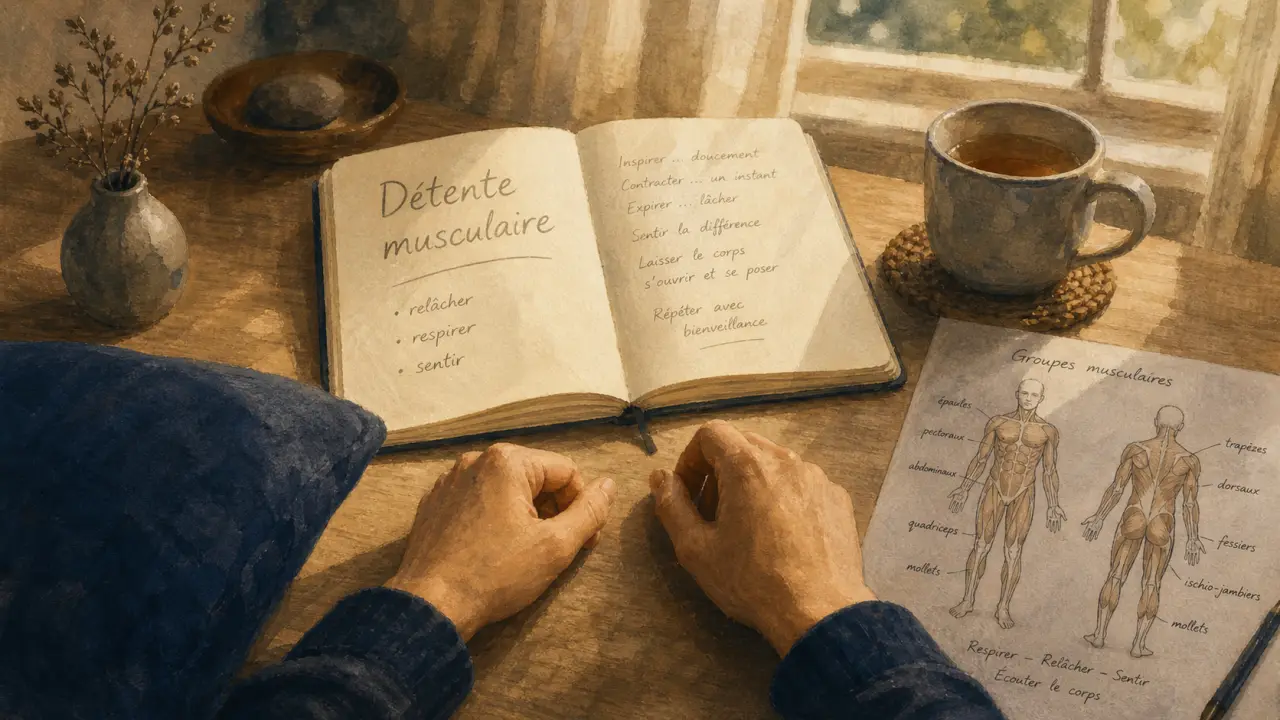 Détente
musculaire
• relâcher
• respirer
• sentir
Inspirer ... doucement
Contracter ... un instant
Expirer ... lâcher
Sentir la différence
Laisser le corps
s'ouvrir et se poser
Répéter avec
bienveillance
Groupes musculaires
épaules
pectoraux
abdominaux
quadriceps
mollets
trapèzes
dorsaux
fessiers
ischio-jambiers
mollets
Respirer – Relâcher – Sentir
Écouter le corps